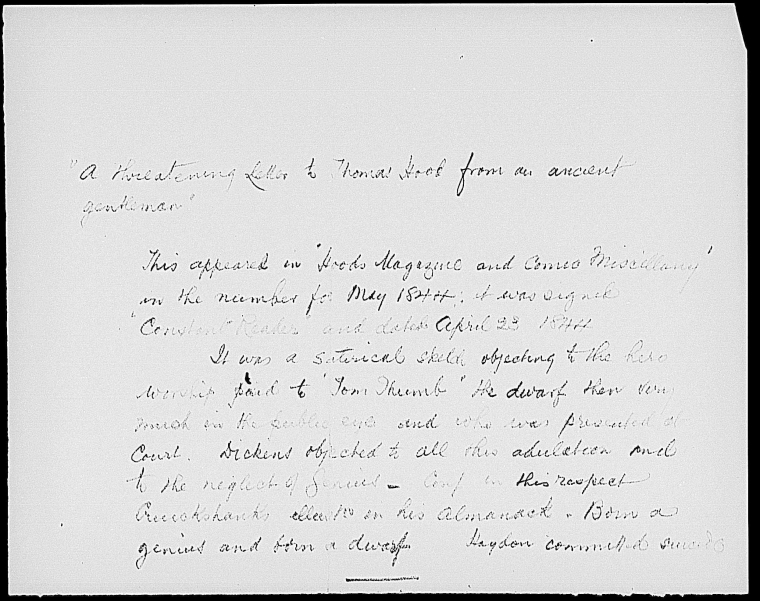 "A threatening Letter to Thomas Hood from an ancient
gentleman"
This appeared in "Hoods Magazine and Comic Miscellany"
in the number for May 1844; it was signed
"Constant Reader" and dated April 23 1844
It was a satirical sketch objecting to the hero
worship paid to "Tom Thumb" the dwarf then very
much in the public eye and who was presented at
Court. Dickens objected to all this adulation and
to the neglect of Genius – Conf in this respect
Cruickshanks illustn in his Almanack – Born a
genius and born a dwarf Haydon committed suicide